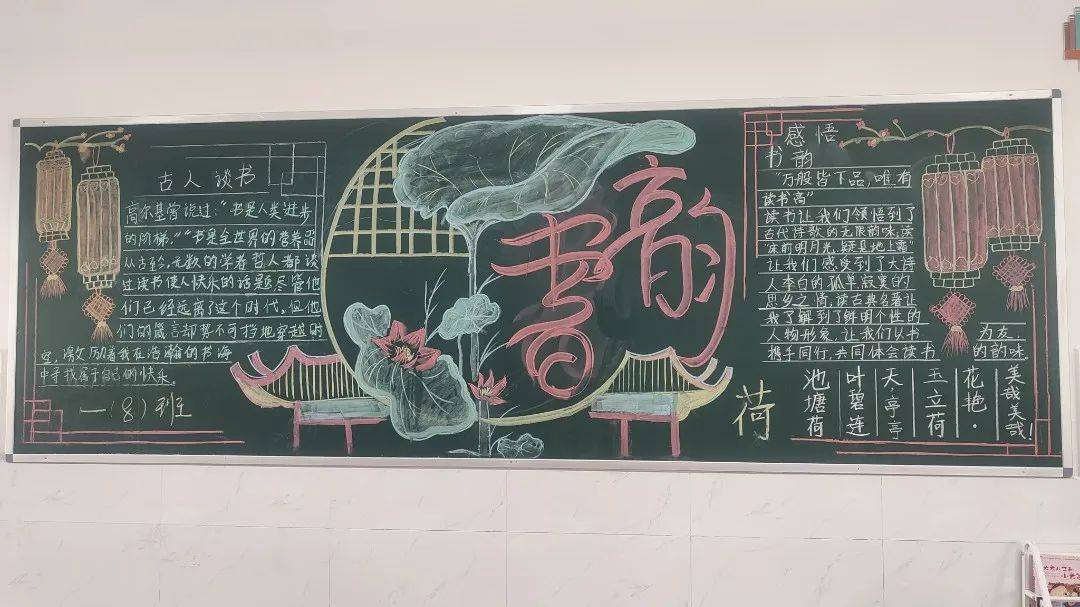 古人谈书
高尔基曾说过:“书是人类进步
的阶梯,”“书是全世界的营养品
从古至今,无数的学者哲人都谈
过读书使人快乐的话题尽管他
们已经远离了这个时代,但他
们的箴言却势不可挡地穿越时
空,激励着我在浩瀚的书海
中寻找属于自己的快乐.
一(8)班
书韵
感悟
书韵
“万般皆下品,唯有
读书高”
读书让我们领悟到了
古代诗歌的无限韵味,读
“床前明月光,疑是地上霜”
让我们感受到了大诗
人李白的孤单寂寞的
思乡之情,读古典名著让
我了解到了鲜明个性的
人物形象,让我们以书为友,
携手同行,共同体会读书的韵味.
荷
池塘荷
叶碧连
天,亭亭
玉立荷
花艳.
美哉美哉!